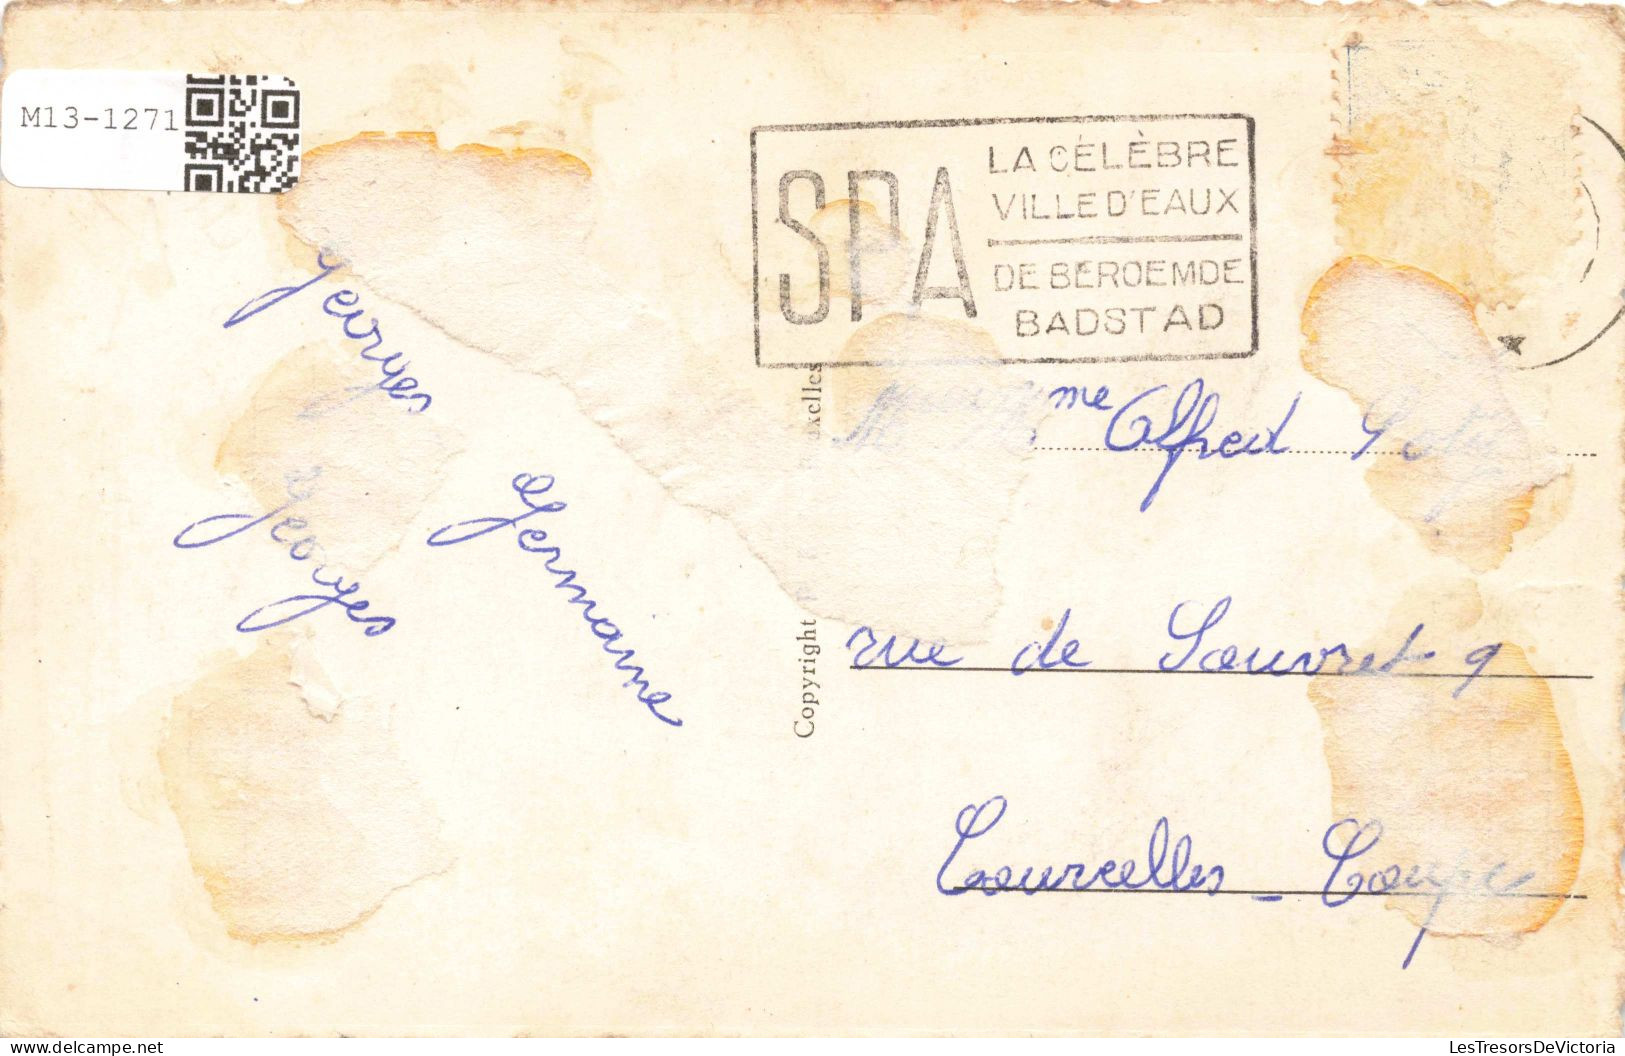 M13-1271
SPA
LA CÉLÈBRE
VILLE D'EAUX
DE BEROEMDE
BADSTAD
Georges
Germaine
Georges
xelles
Copyright
me Alfred
rue de Souvret 9
Courcelles - Coupe
delcampe.net
LesTresorsDeVictoria